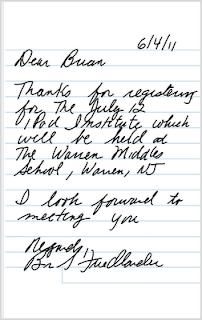 6/4/11
Dear Brian
Thanks for registering
for The July 12
iPad Institute which
will be held at
The Warren Middle
School, Warren, NJ
I look forward to
meeting you
Regards,
Friedlander